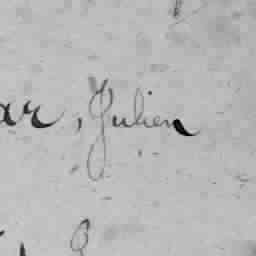 ar, Julien